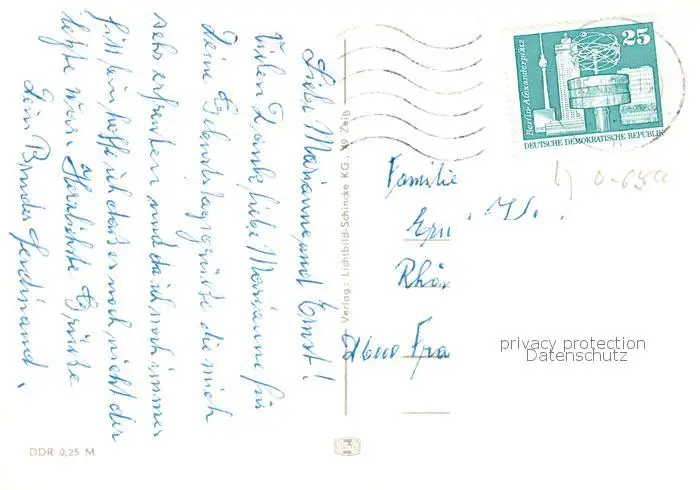 Liebe Marianne und Ernst!
Vielen Dank liebe Marianne für
Deine Geburtstagsgrüße die mich
sehr erfreuten und da ich noch immer
fit bin, hoffe ich daß es noch nicht der
letzte war. Herzlichste Grüße
Dein Bruder Ferdinand.
DDR 0,25 M
Verlag: Lichtbild-Schincke KG., 49 Zeitz
25
Berlin-Alexanderplatz
DEUTSCHE DEMOKRATISCHE REPUBLIK
Familie
Rhön
Fra
privacy protection
Datenschutz